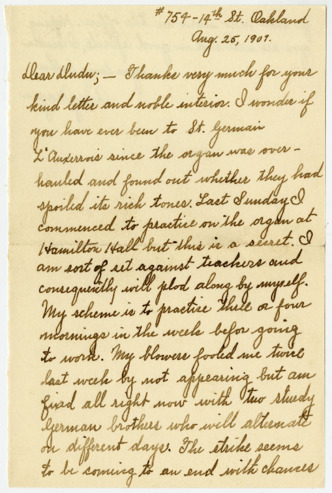 # 754-14th St. Oakland
Aug. 25, 1901.
Dear Dudu; — Thanks very much for your
kind letter and noble interior. I wonder if
you have ever been to St. Germain
L'Auxerrois since the organ was over-
hauled and found out whether they had
spoiled its rich tones. Last Sunday I
commenced to practice on the organ at
Hamilton Hall but this is a secret. I
am sort of set against teachers and
consequently will plod along by myself.
My scheme is to practise three or four
mornings in the week befor going
to work. My blowers fooled me twice
last week by not appearing but am
fixed all right now with two sturdy
German brothers who will alternate
on different days. The strike seems
to be coming to an end with chances